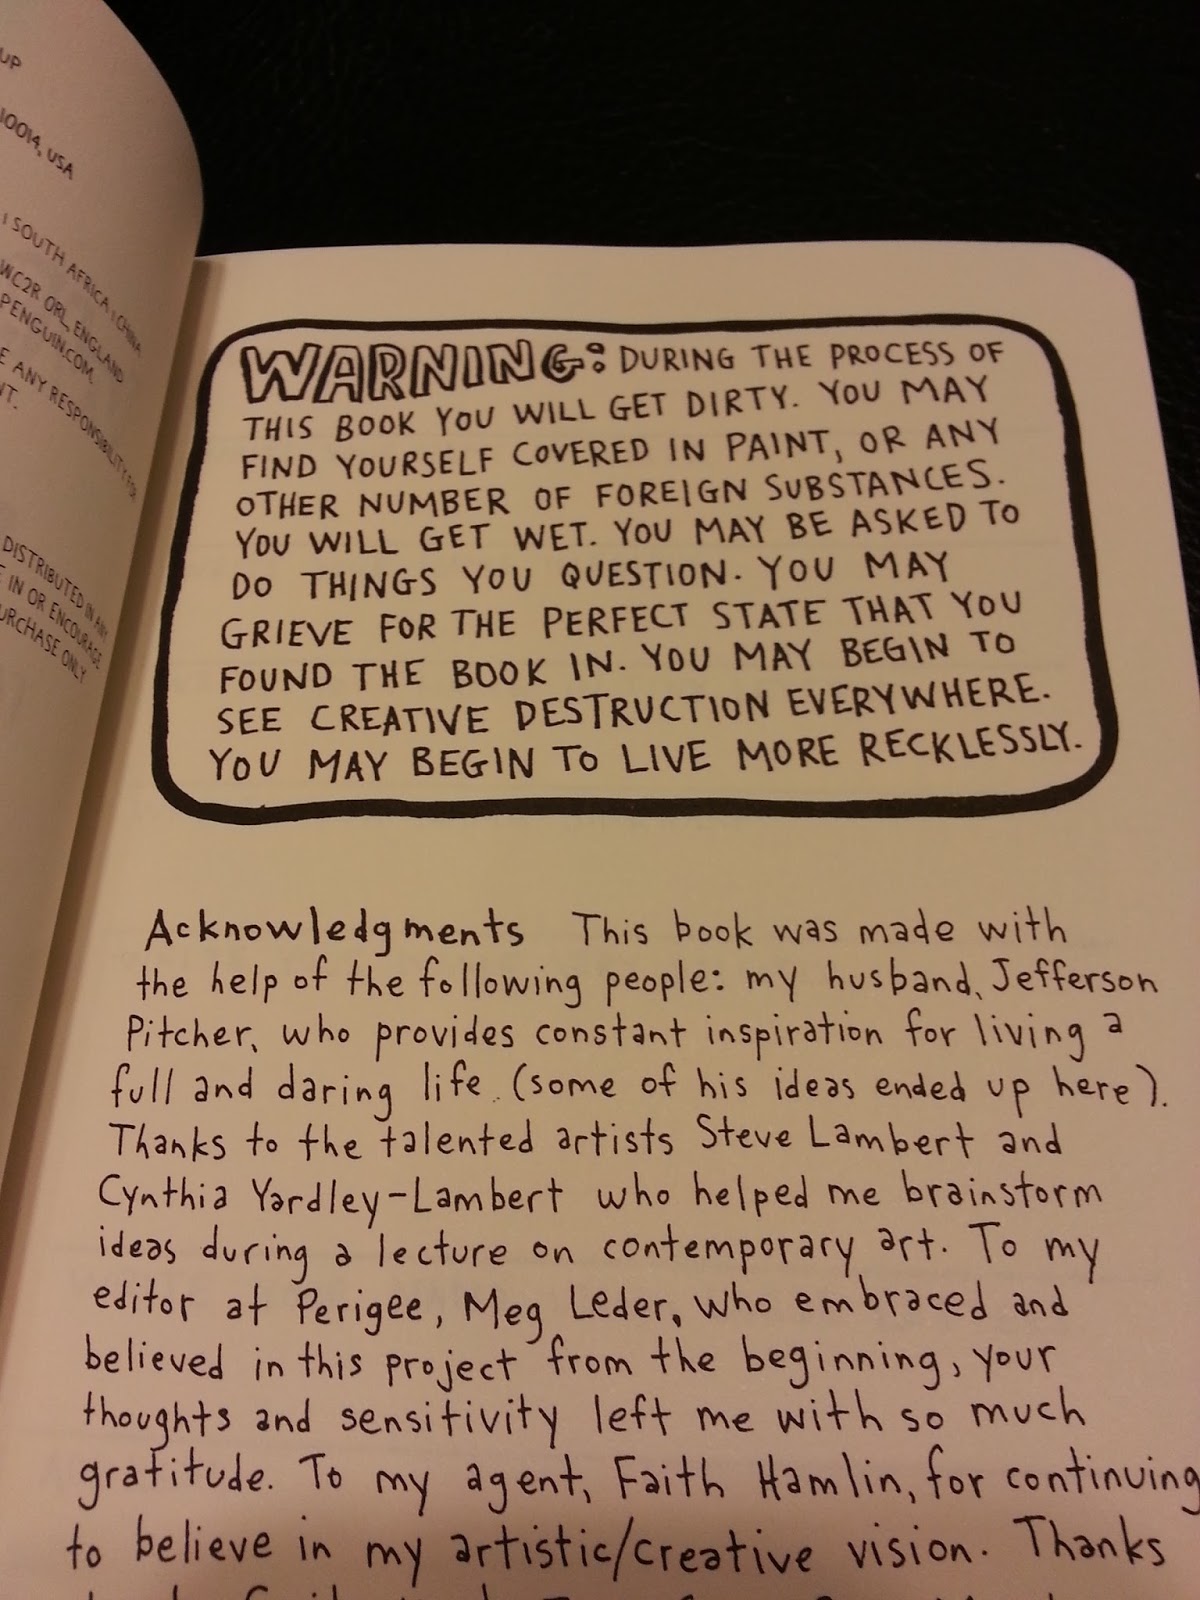 UP
10014, USA
SOUTH AFRICA | CHINA
WC2R ORL, ENGLAND
PENGUIN.COM.
ANY RESPONSIBILITY FOR
DISTRIBUTED IN ANY
IN OR ENCOURAGE
PURCHASE ONLY
WARNING: DURING THE PROCESS OF
THIS BOOK YOU WILL GET DIRTY. YOU MAY
FIND YOURSELF COVERED IN PAINT, OR ANY
OTHER NUMBER OF FOREIGN SUBSTANCES.
YOU WILL GET WET. YOU MAY BE ASKED TO
DO THINGS YOU QUESTION. YOU MAY
GRIEVE FOR THE PERFECT STATE THAT YOU
FOUND THE BOOK IN. YOU MAY BEGIN TO
SEE CREATIVE DESTRUCTION EVERYWHERE.
YOU MAY BEGIN TO LIVE MORE RECKLESSLY.
Acknowledgments This book was made with
the help of the following people: my husband, Jefferson
Pitcher, who provides constant inspiration for living a
full and daring life (some of his ideas ended up here).
Thanks to the talented artists Steve Lambert and
Cynthia Yardley-Lambert who helped me brainstorm
ideas during a lecture on contemporary art. To my
editor at Perigee, Meg Leder, who embraced and
believed in this project from the beginning, your
thoughts and sensitivity left me with so much
gratitude. To my agent, Faith Hamlin, for continuing
to believe in my artistic/creative vision. Thanks